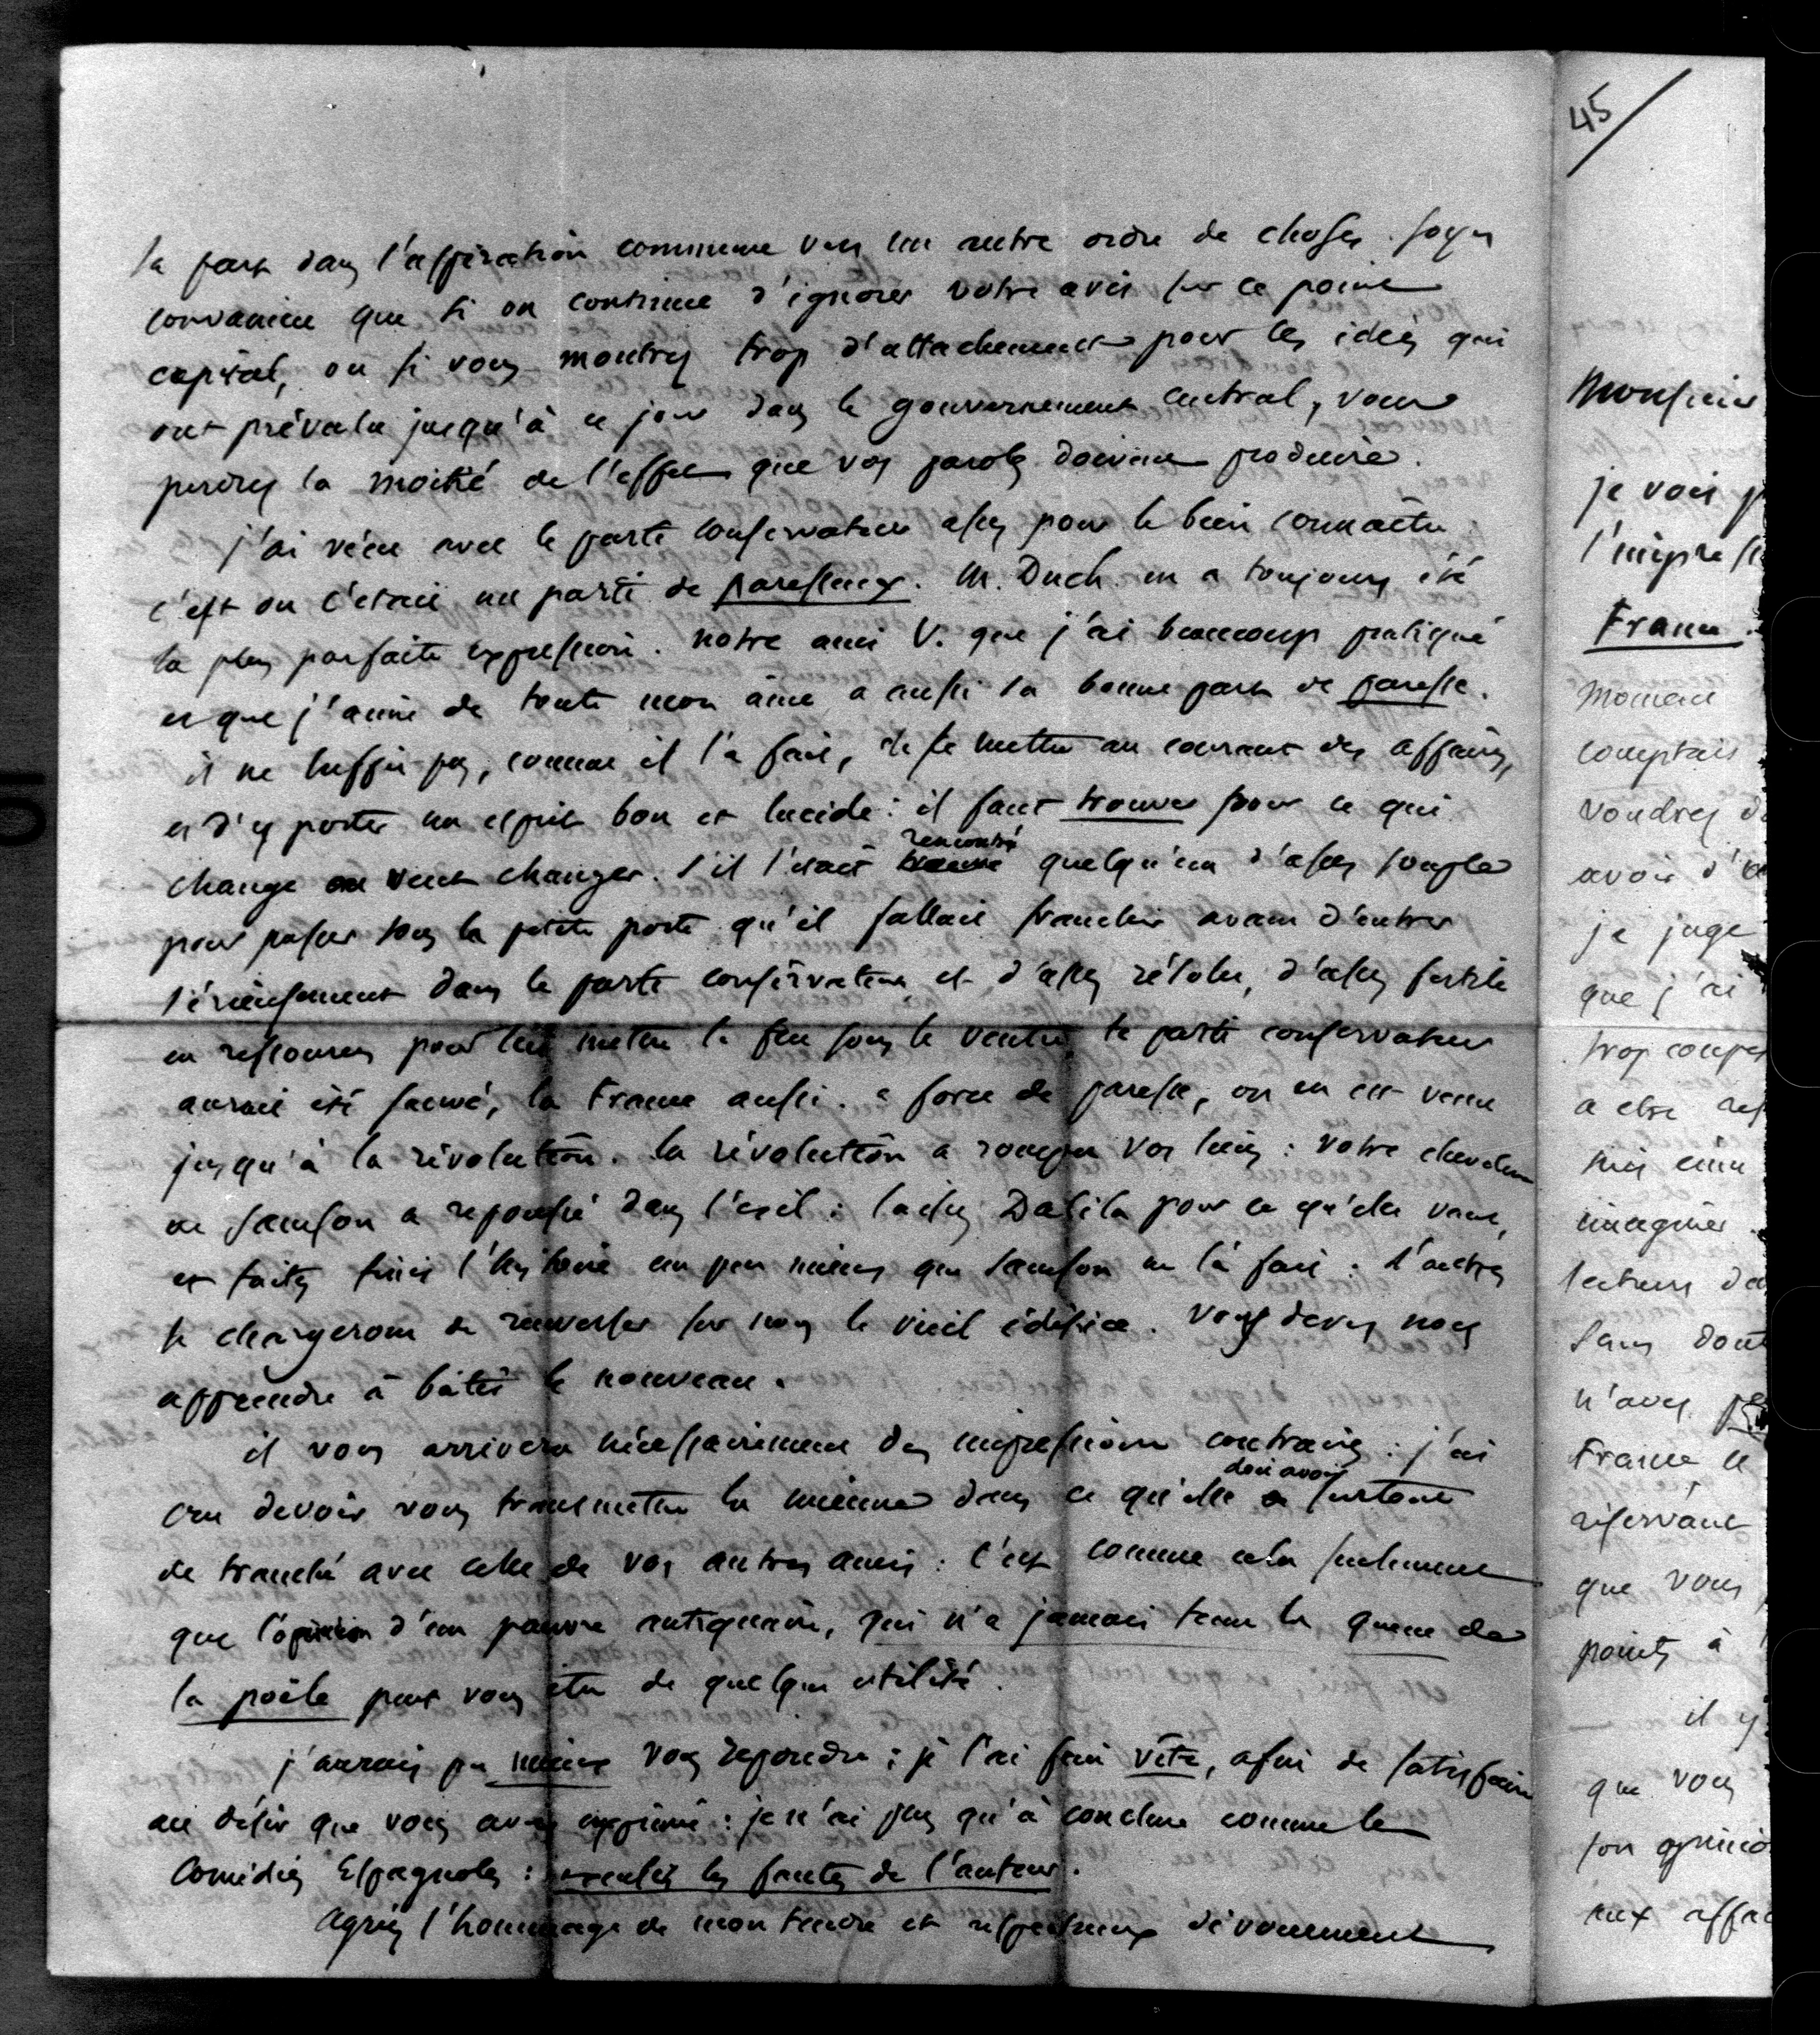 sa part dans l'aspiration commune vers un autre ordre de choses. soyez
convaincu que si on continue d'ignorer votre avis sur ce point
capital, ou si vous montrez trop d'attachement pour les idées qui
ont prévalu jusqu'à ce jour dans le gouvernement central, vous
perdrez la moitié de l'effet que vos paroles doivent produire.
j'ai vécu avec le parti conservateur assez pour le bien connaître
c'est ou c'était un parti de paresseux. M. Duch. en a toujours été
la plus parfaite expression. notre ami V. que j'ai beaucoup pratiqué
et que j'aime de toute mon âme a aussi sa bonne part de paresse.
il ne suffit pas, comme il l'a fait, de se mettre au courant des affaires,
et d'y porter un esprit bon et lucide : il faut trouver pour ce qui
change ou veut changer. s'il s'était rencontré quelqu'un d'assez souple
pour passer sous la petite porte qu'il fallait franchir avant d'entrer
sérieusement dans le parti conservateur et d'assez résolu, d'assez fertile
en ressources pour lui mettre le feu sous le ventre, le parti conservateur
aurait été sauvé, la France aussi. à force de paresse, on en est venu
jusqu'à la révolution. la révolution a rompu vos liens : votre chevelure
de Samson a repoussé dans l'exil : laissez Dalila pour ce qu'elle vaut,
et faites finir l'histoire un peu mieux que Samson ne l'a fait : d'autres
se chargeront de renverser sur nous le vieil édifice. Vous devez nous
apprendre à bâtir le nouveau.
il vous arrivera nécessairement des impressions contraires : j'ai
cru devoir vous transmettre la mienne dans ce qu'elle doit avoir surtout
de tranché avec celle de vos autres amis : c'est comme cela seulement
que l'opinion d'un pauvre antiquaire, qui n'a jamais tenu la queue de
la poële peut vous être de quelque utilité.
j'aurais pu mieux vous répondre ; je l'ai fait vite, afin de satisfaire
au désir que vous avez exprimé : je n'ai plus qu'à conclure comme les
Comédies Espagnoles : excusez les fautes de l'auteur.
Agréez l'hommage de mon tendre et respectueux dévouement
45
Monsieur
je vois
France.
moment
comptais
voudrez
avoir
je juge
que j'ai
trop
a être
imaginer
lecteurs
Sans
n'avez
France
réservant
que vous
points à
il y
que vous
son
aux